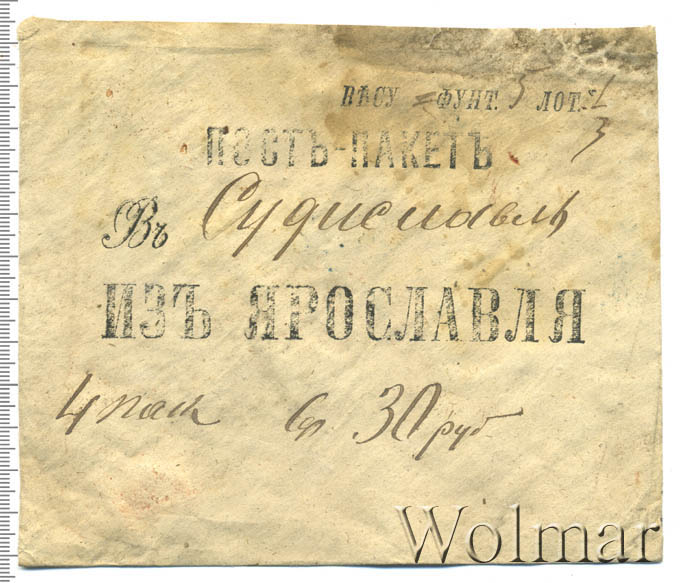 ВѢСУ = ФУНТ. 5 ЛОТ.
3
ПОСТЪ-ПАКЕТЪ
Въ Судиславль
ИЗЪ ЯРОСЛАВЛЯ
4 30 руб
Wolmar